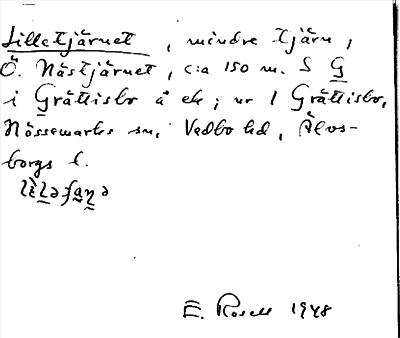 Lilletjärnet, mindre tjärn,
Ö. Nästjärnet, c:a 150 m. S G
i Grättisbo å ek; nr 1 Grättisbo,
Nössemarks sn, Vedbo hd, Älvs-
borgs l.
E. Rosell 1948